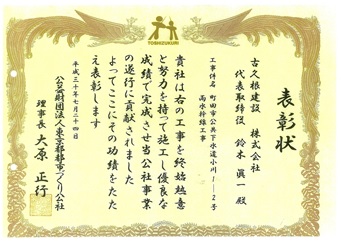 TOSHIZUKURI
表彰状
古久根建設 株式会社
代表取締役 鈴木 眞一 殿
工事件名 町田市公共下水道小川1-2号
雨水幹線工事
貴社は右の工事を終始熱意
と努力を持って施工し優良な
成績で完成させ当公社事業
の遂行に貢献されました
よってここにその功績をたた
え表彰します
平成三十年七月二十四日
公益財団法人東京都都市づくり公社
理事長 大原 正行